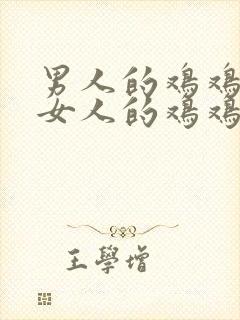 男人的鸡鸡
女人的鸡鸡
王學增